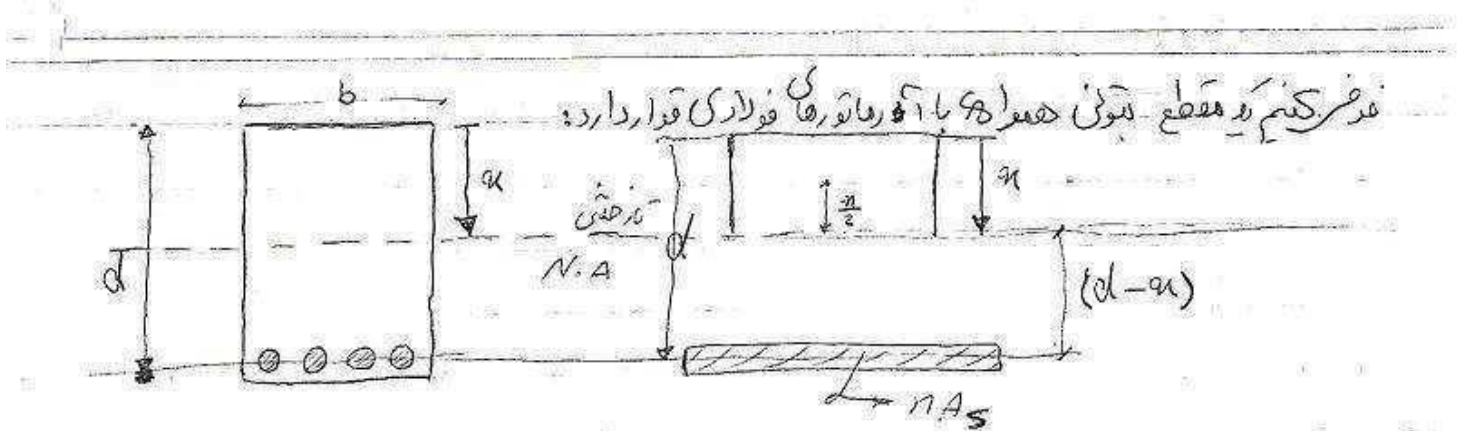 فرض کنیم که مقطع بتونی همواره با آرماتورهای فولادی قرار دارد:
b
x
x
x/2
تارخنثی
N.A
d
d
(d-x)
nAs